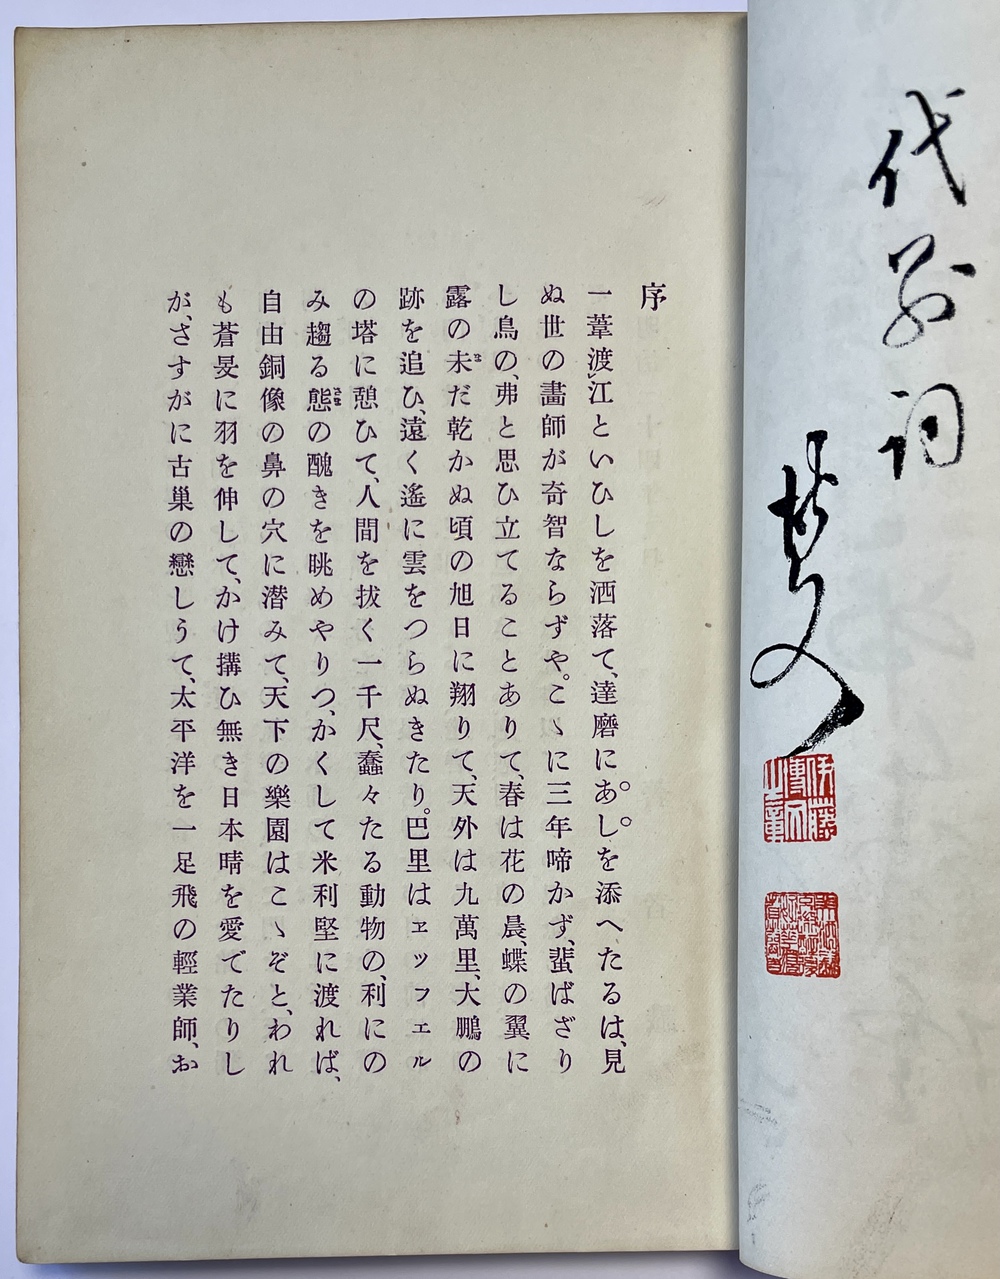 代箚詞
博文
伊藤博文之章
序
一葦渡江といひしを洒落て、達磨にあしを添へたるは、見
ぬ世の畵師が奇智ならずや。こゝに三年啼かず、蜚ばざり
し鳥の、弗と思ひ立てることありて、春は花の晨、蝶の翼に
露の未だ乾かぬ頃の旭日に翔りて、天外は九萬里、大鵬の
跡を追ひ、遠く遙に雲をつらぬきたり。巴里はヱッフェル
の塔に憩ひて、人間を拔く一千尺、蠢々たる動物の、利にの
み趨る態の醜きを眺めやりつ、かくして米利堅に渡れば、
自由銅像の鼻の穴に潜みて、天下の樂園はこゝぞと、われ
も蒼旻に羽を伸して、かけ搆ひ無き日本晴を愛でたりし
が、さすがに古巢の戀しうて、太平洋を一足飛の輕業師、お